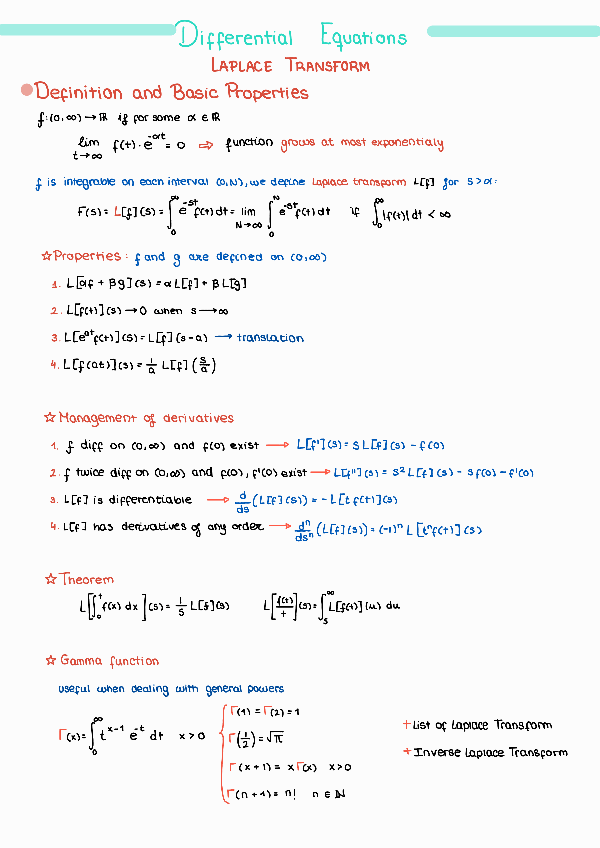 Differential Equations
LAPLACE TRANSFORM
Definition and Basic Properties
f:(0,∞)→ℝ if for some α∈ℝ
lim t→∞ f(t)·e^-αt = 0 ⇒ function grows at most exponentialy
f is integrable on each interval (0,N), we define laplace transform L[f] for s>α:
F(s) = L[f](s) = ∫₀^∞ e^-st f(t) dt = lim N→∞ ∫₀^N e^-st f(t) dt if ∫₀^∞ |f(t)| dt < ∞
☆ Properties: f and g are defined on (0,∞)
1. L[αf + βg](s) = αL[f] + βL[g]
2. L[f(t)](s) → 0 when s → ∞
3. L[e^at f(t)](s) = L[f](s-a) → translation
4. L[f(at)](s) = 1/a L[f](s/a)
☆ Management of derivatives
1. f diff on (0,∞) and f(0) exist → L[f'](s) = sL[f](s) - f(0)
2. f twice diff on (0,∞) and f(0), f'(0) exist → L[f''](s) = s² L[f](s) - sf(0) - f'(0)
3. L[f] is differentiable → d/ds (L[f](s)) = -L[t f(t)](s)
4. L[f] has derivatives of any order → dⁿ/dsⁿ (L[f](s)) = (-1)ⁿ L[tⁿf(t)](s)
☆ Theorem
L[∫₀^t f(x) dx](s) = 1/s L[f](s) L[f(t)/t](s) = ∫_s^∞ L[f(t)](u) du
☆ Gamma function
useful when dealing with general powers
Γ(x) = ∫₀^∞ t^x-1 e^-t dt x>0
Γ(1) = Γ(2) = 1
Γ(1/2) = √π
Γ(x+1) = xΓ(x) x>0
Γ(n+1) = n! n∈ℕ
+ List of Laplace Transform
+ Inverse Laplace Transform